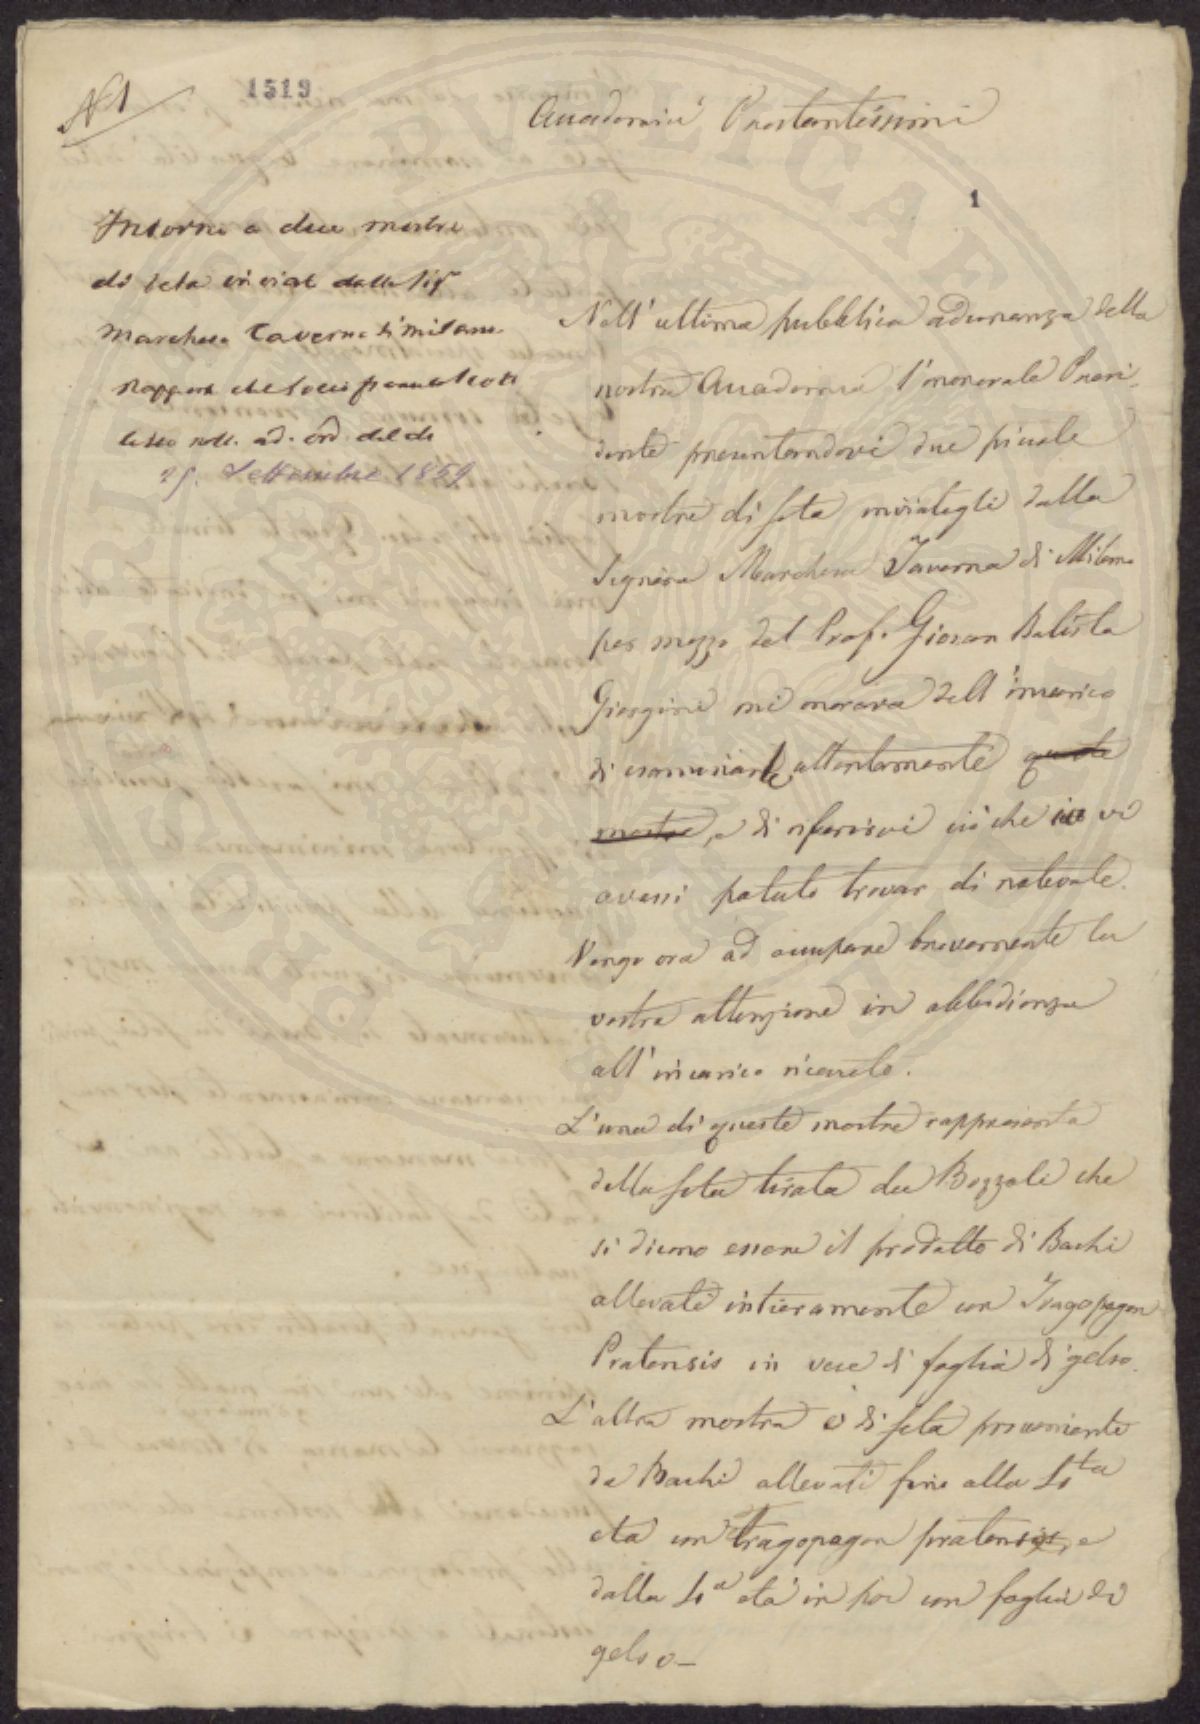 N 1
1519
Accademici Prestantissimi
1
Intorno a due mostre
di seta inviate dalla Sigª
Marchesa Taverna di Milano
Rapporto del Socio
letto nell. ad. ord. del dì
25. Settembre 1859
Nell' ultima pubblica adunanza della
nostra Accademia l'onorevole Presi-
dente presentandovi due piccole
mostre di seta inviategli dalla
Signora Marchesa Taverna di Milano
per mezzo del Prof. Giovan Batista
Giorgini mi onorava dell' incarico
di esaminarle attentamente queste
mostre, e di riferirvi ciò che io vi
avessi potuto trovar di notevole.
Vengo ora ad occupare brevemente la
vostra attenzione in obbedienza
all' incarico ricevuto.
L'una di queste mostre rappresenta
della seta tirata da Bozzoli che
si dicono essere il prodotto di Bachi
allevati intieramente con Tragopogon
Pratensis in vece di foglia di gelso.
L'altra mostra è di seta proveniente
da Bachi allevati fino alla 4ta
età con tragopogon pratensis, e
dalla 4a età in poi con foglia di
gelso -